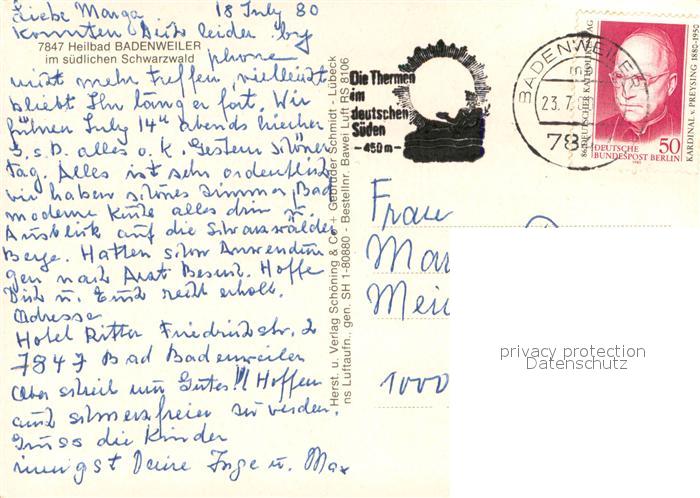 Liebe Marga 18 July 80
konnten Dich leider by
phone
7847 Heilbad BADENWEILER
im südlichen Schwarzwald
nicht mehr treffen, vielleicht
bleibt Ihr länger fort. Wir
führen July 14th abends hierher
G. s. D. alles o. k. Gestern schöner
Tag. Alles ist sehr ordentlich
wir haben schönes Zimmer, Bad
moderne Küche alles drin u.
Ausblick auf die Schwarzwälder
Berge. Hatten schon Anwendun
gen nach Arzt Besuch. Hoffe
Dich u. Euch recht erholt.
Adresse
Hotel Ritter Friedrichstr. 2
7847 Bad Badenweiler
Aber schreib nur Gutes!! Hoffen
auch schmerzfreier zu werden.
Gruss die Kinder
innigst Deine Inge u. Max
Herst. u. Verlag Schöning & Co + Gebrüder Schmidt - Lübeck
ns Luftaufn., gen. SH 1-80880 - Bestellnr. Bawei Luft RS 8106
Die Thermen
im
deutschen
Süden
- 450 m -
BADENWEILER
23.7.
78
86. DEUTSCHER KATHOLIKENTAG
KARDINAL v. PREYSING 1880-1950
DEUTSCHE
BUNDESPOST BERLIN
50
Frau
Mar
Mei
1000
privacy protection
Datenschutz